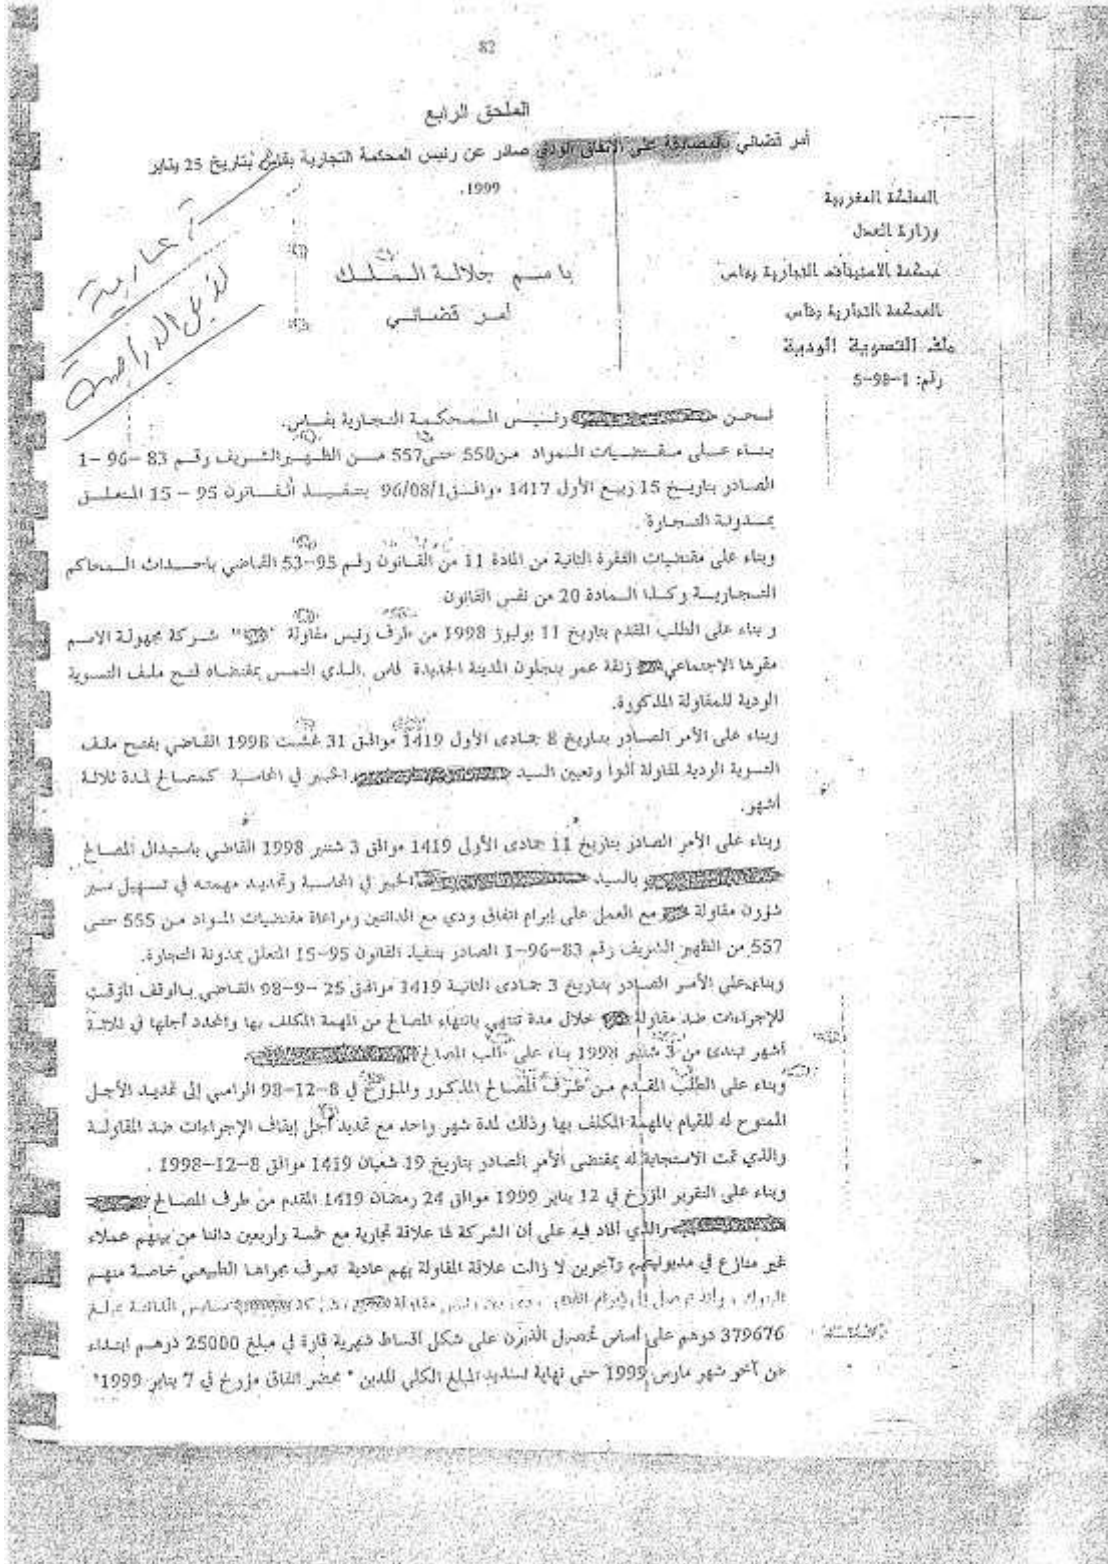 82
الملحق الرابع
أمر قضائي بالمصادقة على الاتفاق الودي صادر عن رئيس المحكمة التجارية بفاس بتاريخ 25 يناير
1999.
المملكة المغربية
وزارة العدل
محكمة الاستيناف التجارية بفاس
المحكمة التجارية بفاس
ملف التسوية الودية
رقم: 1-98-5
باسم جلالة الملك
أمر قضائي
نحن رئيس المحكمة التجارية بفاس.
بناء على مقتضيات المواد من 550 حتى 557 من الظهير الشريف رقم 83 -96 -1
الصادر بتاريخ 15 ربيع الأول 1417 موافق 96/08/1 بتنفيذ القانون 95 - 15 المتعلق
بمدونة التجارة.
وبناء على مقتضيات الفقرة الثانية من المادة 11 من القانون رقم 95-53 القاضي باحداث المحاكم
التجارية وكذا المادة 20 من نفس القانون
و بناء على الطلب المقدم بتاريخ 11 يوليوز 1998 من طرف رئيس مقاولة " " شركة مجهولة الاسم
مقرها الاجتماعي زنقة عمر بنجلون المدينة الجديدة فاس .الذي التمس بمقتضاه فتح ملف التسوية
الودية للمقاولة المذكورة.
وبناء على الأمر الصادر بتاريخ 8 جمادى الأول 1419 موافق 31 غشت 1998 القاضي بفتح ملف
التسوية الودية لمقاولة وتعيين السيد الخبير في المحاسبة كمصالح لمدة ثلاثة
أشهر.
وبناء على الأمر الصادر بتاريخ 11 جمادى الأولى 1419 موافق 3 شتنبر 1998 القاضي باستبدال المصالح
بالسيد الخبير في المحاسبة وتحديد مهمته في تسهيل سير
شؤون مقاولة مع العمل على إبرام اتفاق ودي مع الدائنين ومراعاة مقتضيات المواد من 555 حتى
557 من الظهير الشريف رقم 83-96-1 الصادر بتنفيذ القانون 95-15 المتعلق بمدونة التجارة.
وبناء على الأمر الصادر بتاريخ 3 جمادى الثانية 1419 موافق 25 -9-98 القاضي بالوقف المؤقت
للإجراءات ضد مقاولة خلال مدة تنتهي بانتهاء المصالح من المهمة المكلف بها والمحدد أجلها في ثلاثة
أشهر تبتدئ من 3 شتنبر 1998 بناء على طلب المصالح
وبناء على الطلب المقدم من طرف المصالح المذكور والمؤرخ في 8-12-98 الرامي إلى تمديد الأجل
الممنوح له للقيام بالمهمة المكلف بها وذلك لمدة شهر واحد مع تمديد أجل إيقاف الإجراءات ضد المقاولة
والذي تمت الاستجابة له بمقتضى الأمر الصادر بتاريخ 19 شعبان 1419 موافق 8-12-1998 .
وبناء على التقرير المؤرخ في 12 يناير 1999 موافق 24 رمضان 1419 المقدم من طرف المصالح
والذي أفاد فيه على أن الشركة لها علاقة تجارية مع خمسة وأربعين دائنا من بينهم عملاء
غير منازع في مديونيتهم وآخرين لا زالت علاقة المقاولة بهم عادية تعرف مجراها الطبيعي خاصة منهم
رئيس مقاولة شركة سايس الدائنة بمبلغ
379676 درهم على أساس تحصيل الديون على شكل أقساط شهرية قارة في مبلغ 25000 درهم ابتداء
من آخر شهر مارس 1999 حتى نهاية تسديد المبلغ الكلي للدين " محضر اتفاق مؤرخ في 7 يناير 1999"